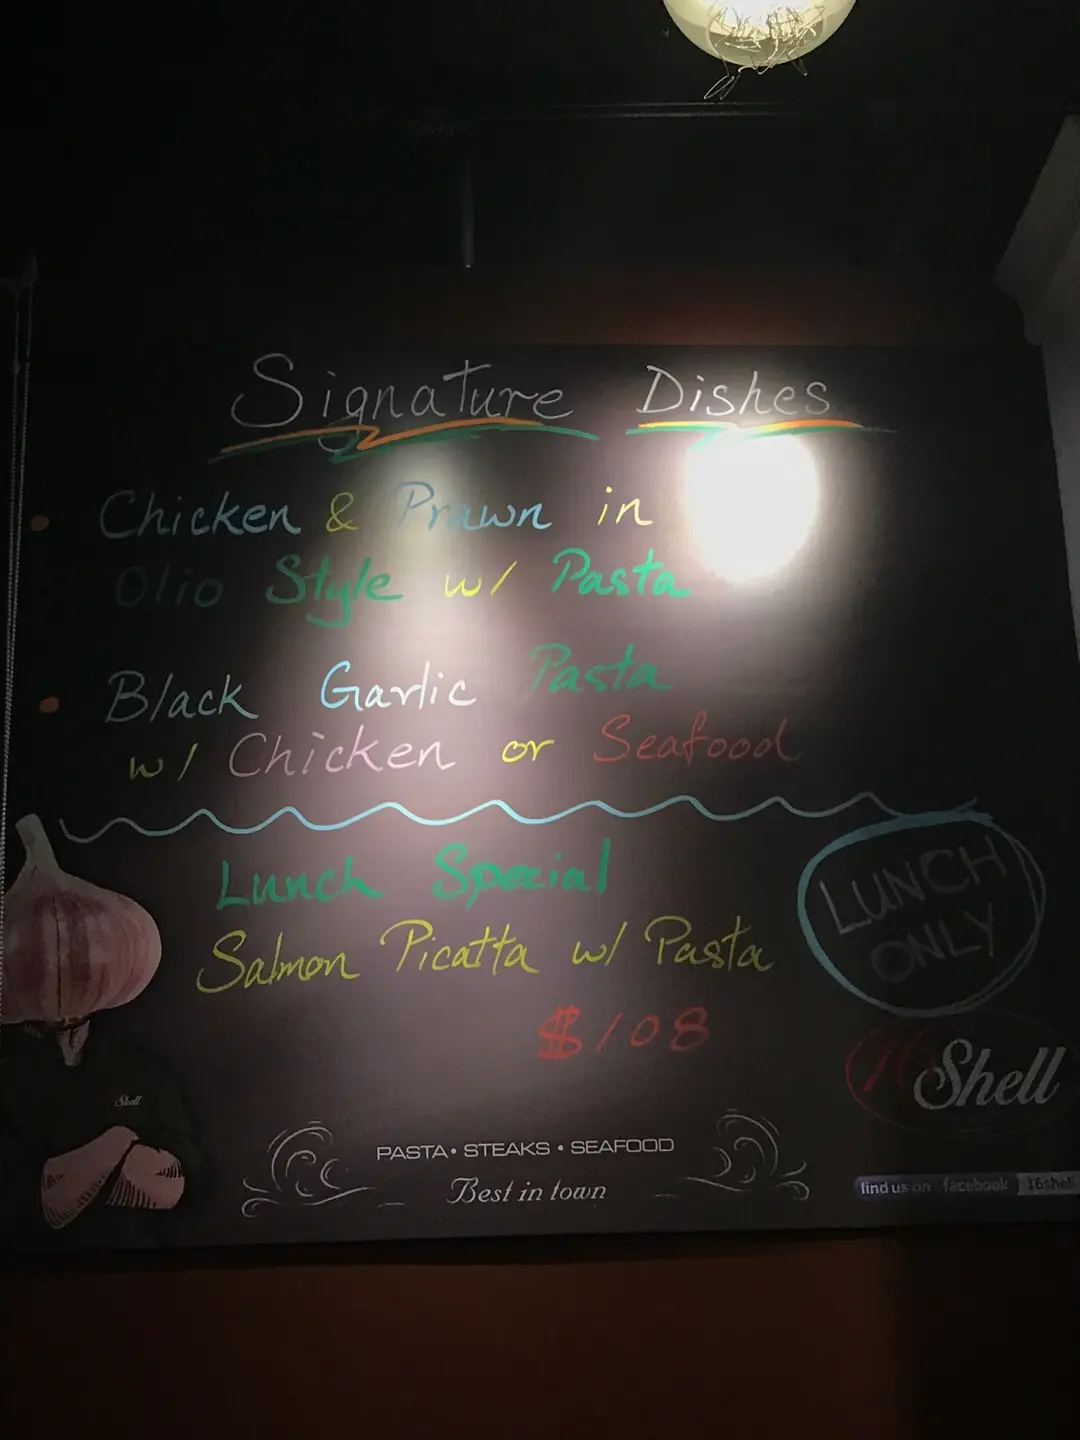 Signature Dishes
Chicken & Prawn in
Olio Style w/ Pasta
Black Garlic Pasta
w/ Chicken or Seafood
Lunch Special
Salmon Picatta w/ Pasta
$108
LUNCH
ONLY
16 Shell
Shell
PASTA • STEAKS • SEAFOOD
Best in town
find us on facebook 16shell